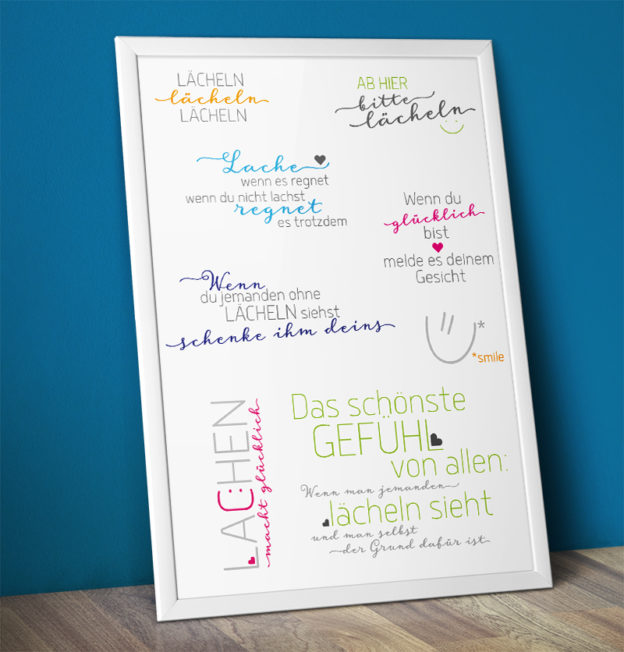 LÄCHELN
lächeln
LÄCHELN
AB HIER
bitte
lächeln
Lache
wenn es regnet
wenn du nicht lachst
regnet
es trotzdem
Wenn du
glücklich
bist
melde es deinem
Gesicht
Wenn
du jemanden ohne
LÄCHELN siehst
schenke ihm deins
*
*smile
LACHEN
macht glücklich
Das schönste
GEFÜHL
von allen:
Wenn man jemanden
lächeln sieht
und man selbst
der Grund dafür ist